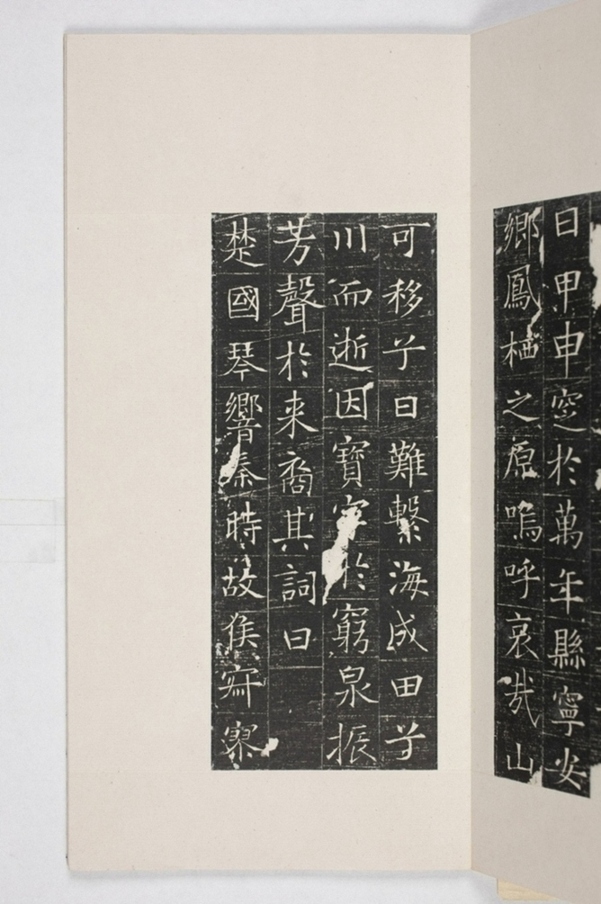 日甲申窆於萬年縣寧安
鄉鳳栖之原嗚呼哀哉山
可移兮日難繫海成田兮
川而逝因寶字於窮泉振
芳聲於来裔其詞曰
楚國琴響秦時故侯寂寥